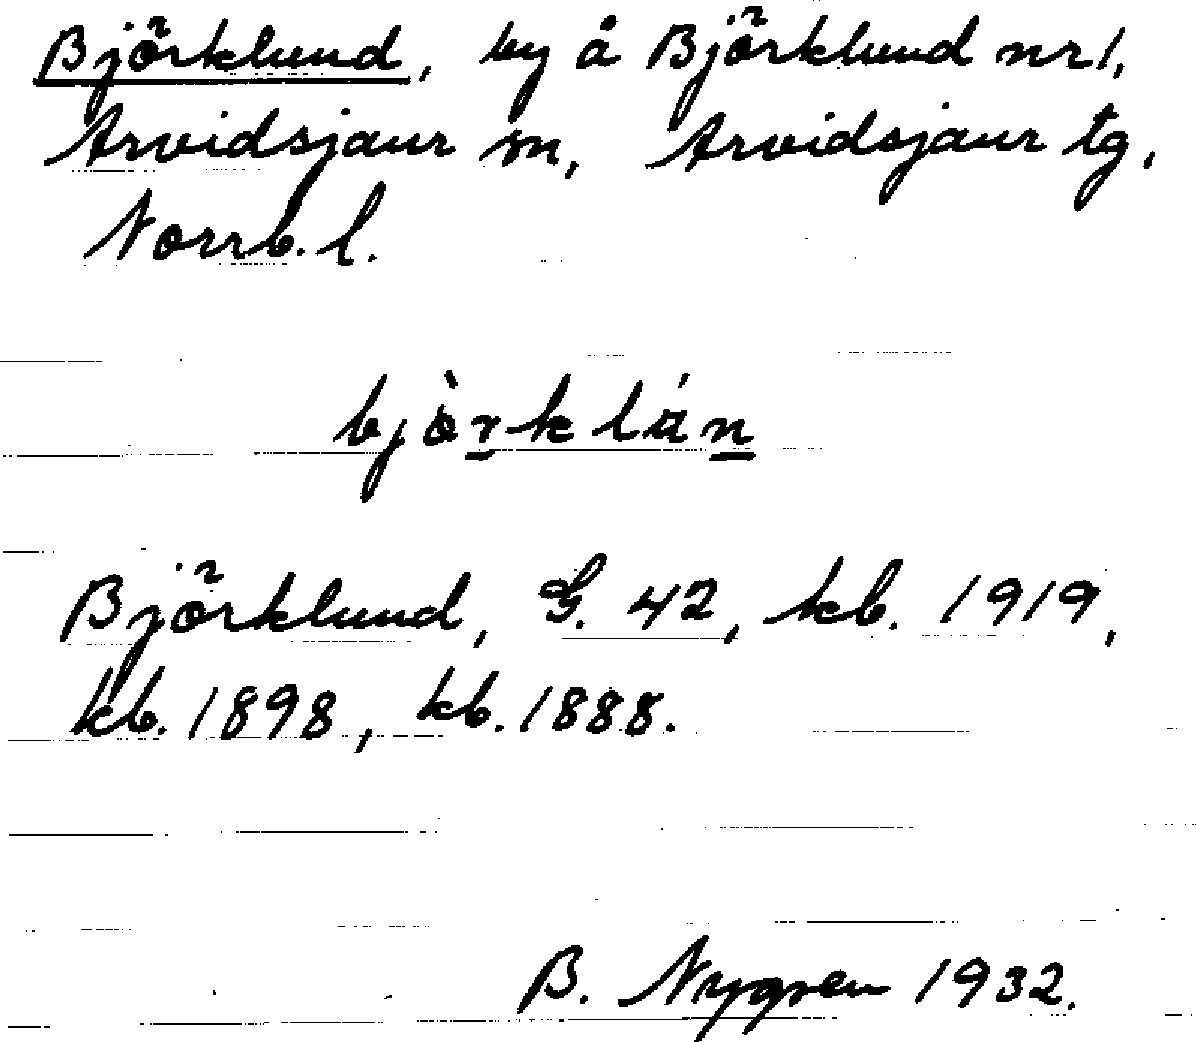 Björklund, by å Björklund nr 1,
Arvidsjaur sn, Arvidsjaur tg,
Norrb. l.
bjòrklán
Björklund, G. 42, kb. 1919,
kb. 1898, kb. 1888.
B. Nygren 1932.